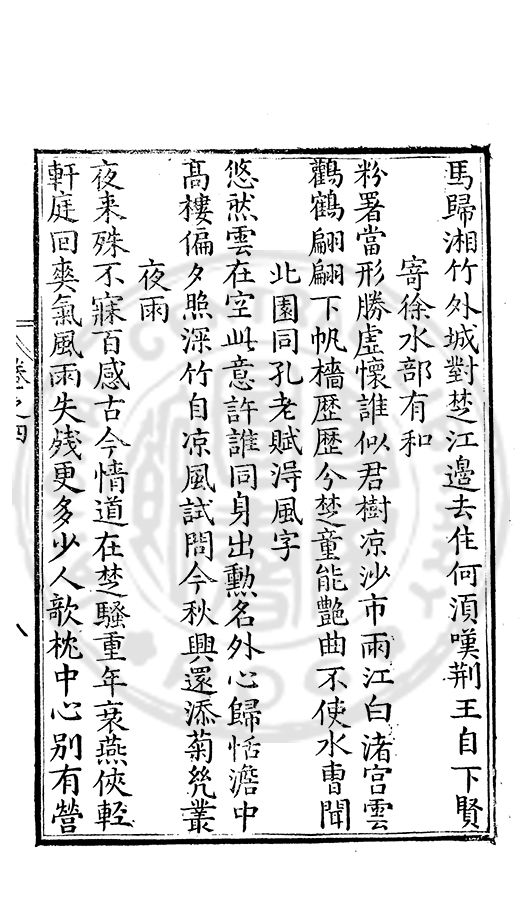 馬歸湘竹外城對楚江邊去住何須嘆荆王自下賢
寄徐水部有和
粉署當形勝虛懷誰似君樹凉沙市雨江白渚宫雲
鸛鶴翩翩下帆檣歷歷今楚童能艷曲不使水曺聞
北園同孔老賦淂風字
悠然雲在空此意許誰同身出勲名外心歸恬澹中
髙樓偏夕照深竹自凉風試問今秋興還添菊幾叢
夜雨
夜来殊不寐百感古今情道在楚騷重年衰燕俠輕
軒庭回爽氣風雨失殘更多少人歌枕中心别有營
卷之四